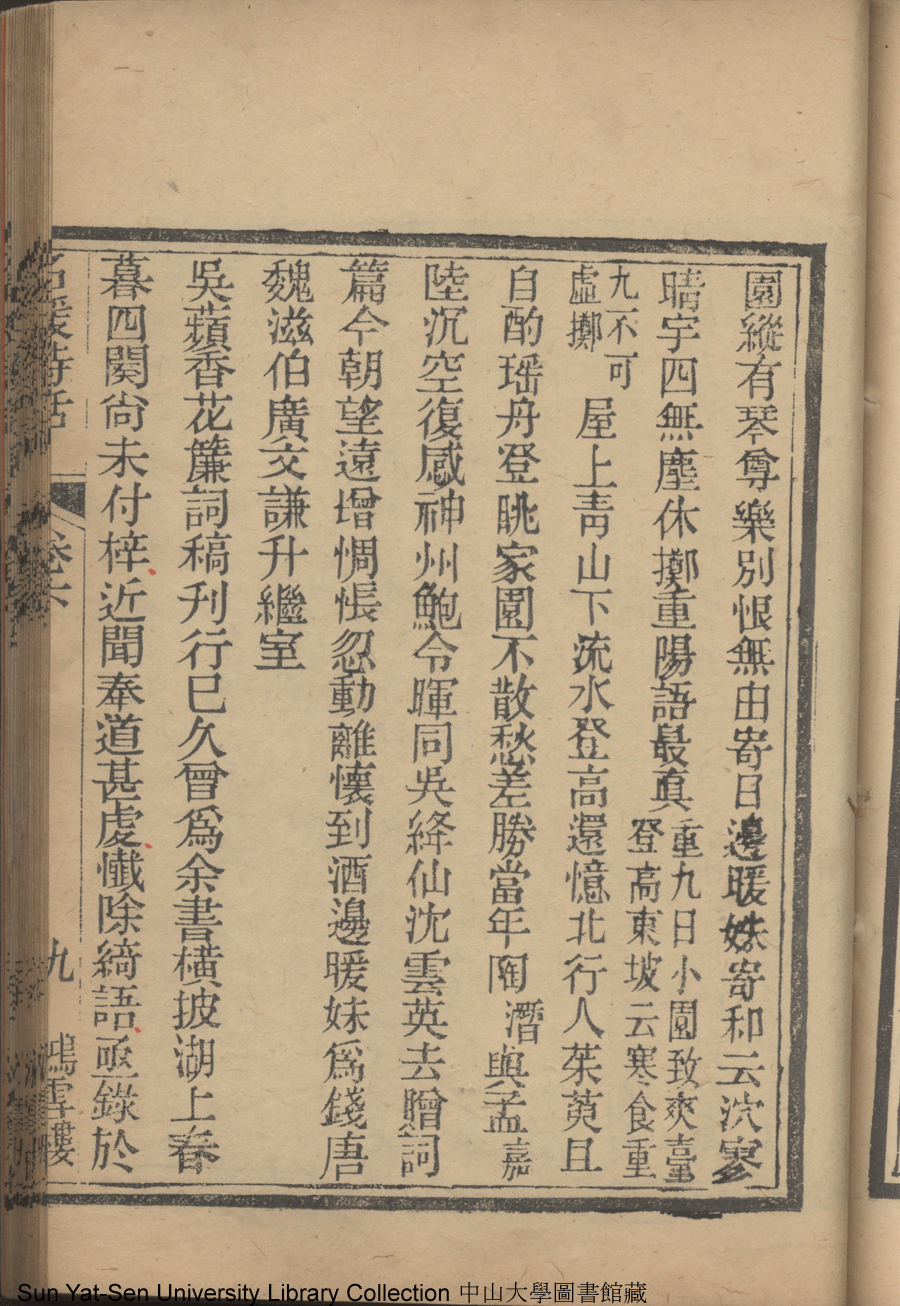 園縱有琴尊樂別恨無由寄日邊暖姝寄和云泬寥
晴宇四無塵休擲重陽語最真重九日小園致爽臺登高東坡云寒食重
九不可虛擲屋上青山下流水登高還憶北行人茱萸且
自酌瑶舟登眺家園不散愁差勝當年陶潛與孟嘉
陸沉空復感神州鮑令暉同吳絳仙沈雲英去贈詞
篇今朝望遠增惆悵忽動離懷到酒邊暖姝爲錢唐
魏滋伯廣文謙升繼室
吳蘋香花簾詞稿刊行已久曾爲余書橫披湖上春
暮四闋尙未付梓近聞奉道甚虔懺除綺語亟錄於
名媛詩話
卷六
九
鴻雪樓
Sun Yat-Sen University Library Collection 中山大學圖書館藏